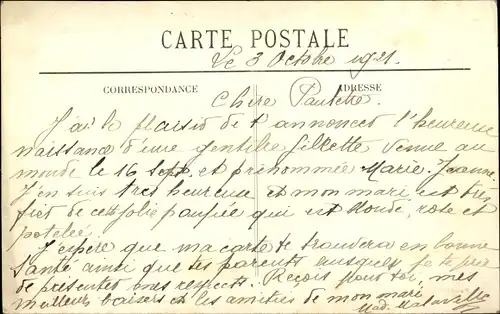 CARTE POSTALE
Le 3 Octobre 1921.
CORRESPONDANCE
ADRESSE
Chère Paulette.
J'ai le plaisir de t'annoncer l'heureuse
naissance d'une gentille fillette venue au
monde le 16 Sept. et prénommée Marie-Jeanne
J'en suis très heureuse et mon mari est très
fier de cette jolie poupée qui est blonde, rose et
potelée.
J'espère que ma carte te trouvera en bonne
santé ainsi que tes parents auxquels je te prie
de présenter mes respects. Reçois pour toi, mes
meilleurs baisers et les amitiés de mon mari
Mad.